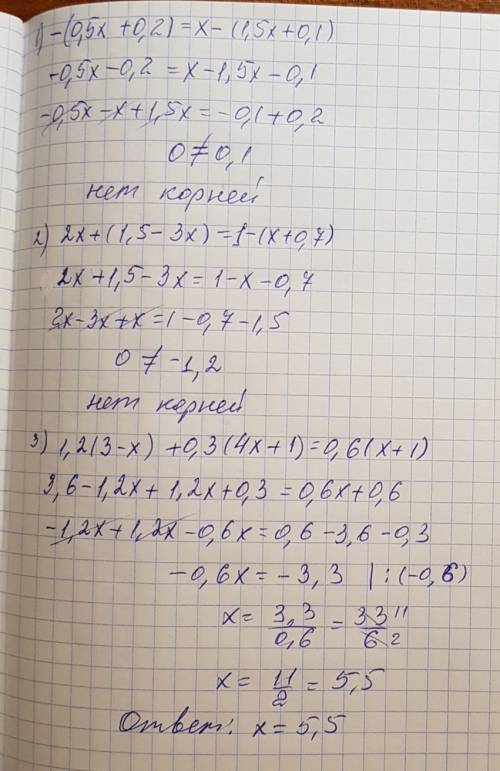 1) -(0,5x+0,2)=x-(1,5x+0,1)
-0,5x-0,2=x-1,5x-0,1
-0,5x-x+1,5x=-0,1+0,2
0≠0,1
нет корней
2) 2x+(1,5-3x)=1-(x+0,7)
2x+1,5-3x=1-x-0,7
2x-3x+x=1-0,7-1,5
0≠-1,2
нет корней
3) 1,2(3-x)+0,3(4x+1)=0,6(x+1)
3,6-1,2x+1,2x+0,3=0,6x+0,6
-1,2x+1,2x-0,6x=0,6-3,6-0,3
-0,6x=-3,3 |:(-0,6)
x=3,3/0,6=33 11/6 2
x=11/2=5,5
Ответ: x=5,5